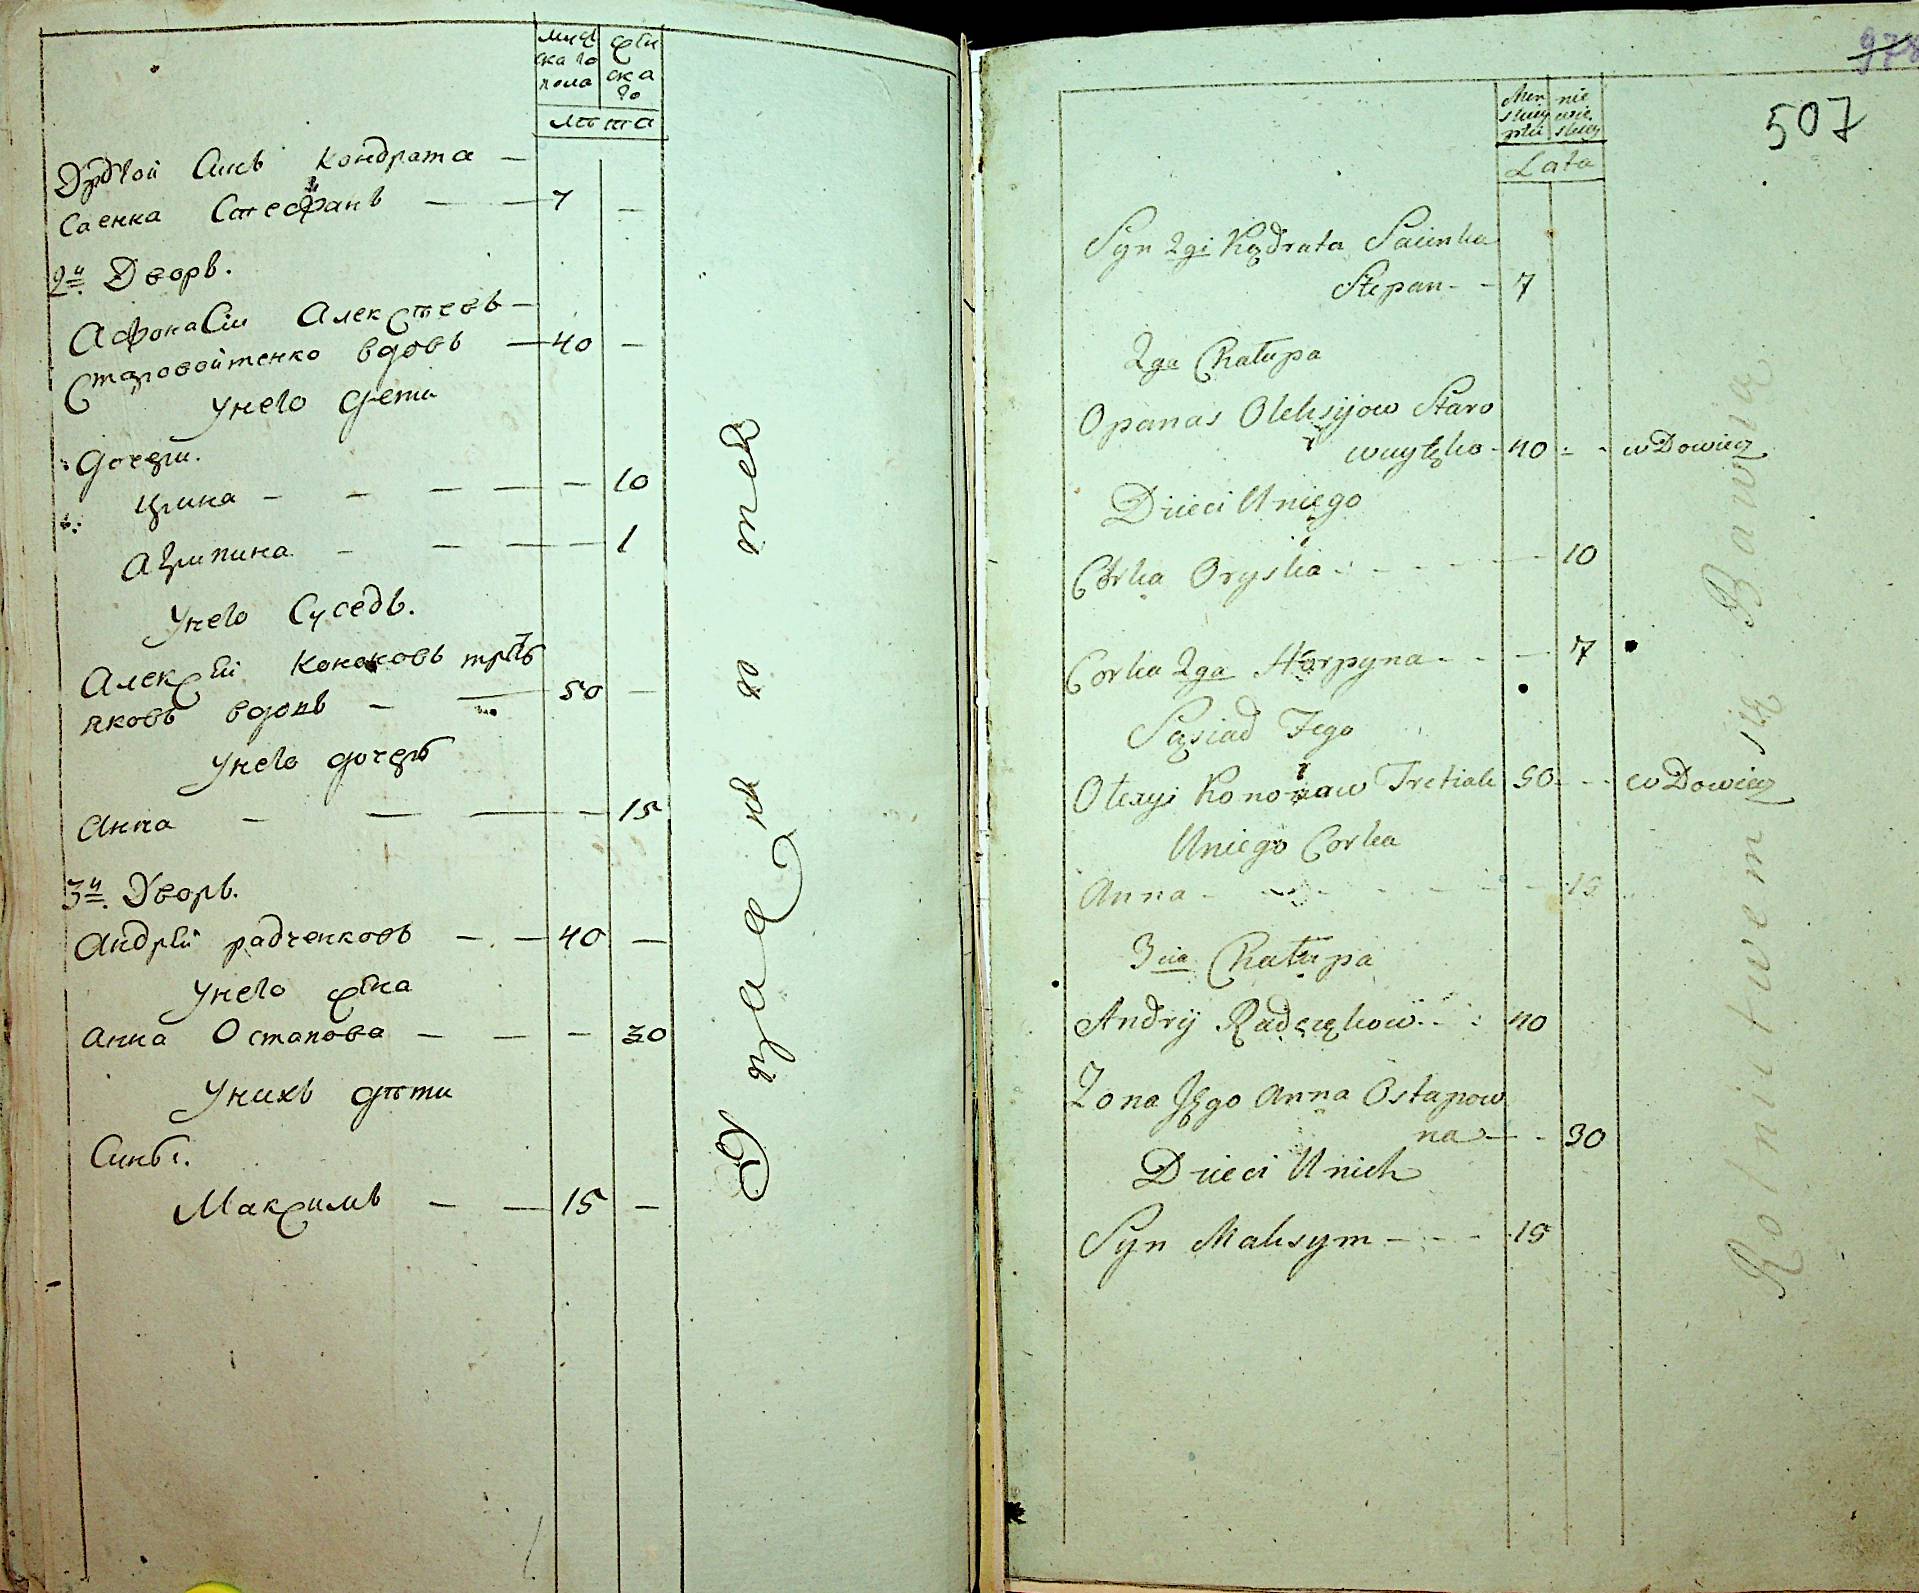 мужескаго пола
женскаго
лѣта
Другой Синъ Кондрата —
Саенка Стефанъ — — 7 —
2й Дворъ.
Афонасiи Алексѣевъ —
Старовойтенко вдовъ — 40 —
Унего дети
Дочери.
Ирина — — — — 10
Агрипина — — — — 1
Унего Суседъ.
Алексѣй Кононовъ трет
яковъ вдовъ — — 50 —
Унего дочеръ
Анна — — — — 15
3й Дворъ.
Андрѣй радченковъ — — 40 —
Унего жѣна
Анна Остапова — — — 30
Унихъ дѣти
Синъ:
Максимъ — — 15 —
978
507
Lata
Syn 2gi Kądrata Saienka
Stepan - - 7
2ga Chałupa
Opanas Oleksijow Staro
woytęko - 40 - - wDowiec
Dzieci Uniego
Córka Oryska - - - - 10
Corka 2ga Horpyna - - - 7
Sąsiad Jego
Olexyi Kononow Tretiak 50 - - wDowiec
Uniego Corka
Anna - - - - - 15
3cia Chałupa
Andrij Radczękow - - : 40
Zona Jego Anna Ostapow
na - - 30
Dzieci Unich
Syn Maksym - - - 15
Rolnictwem się Bawią